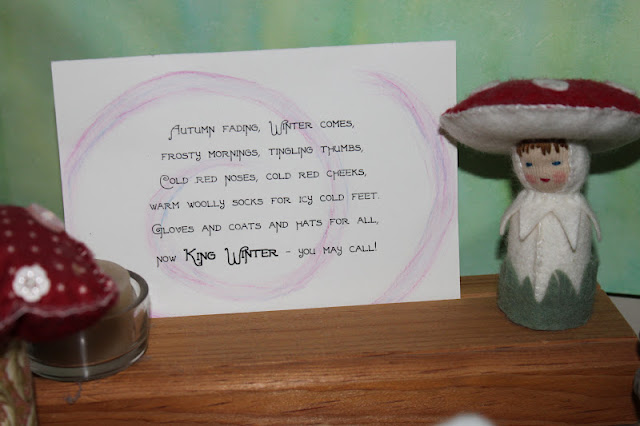 Autumn fading, Winter comes,
frosty mornings, tingling thumbs,
Cold red noses, cold red cheeks,
warm woolly socks for icy cold feet.
Gloves and coats and hats for all,
now King Winter - you may call!